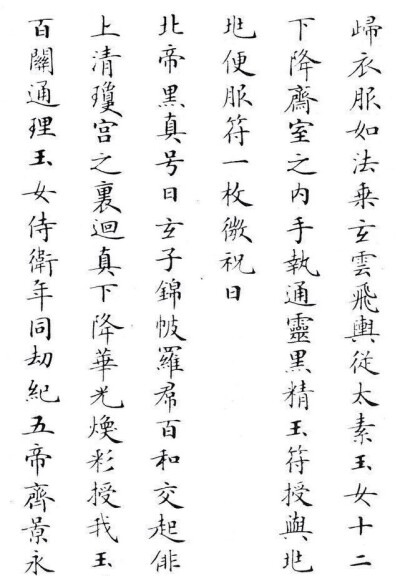 歸衣服如法乗玄雲飛輿從太素玉女十二
下降齋室之内手執通靈黑精玉符授與兆
兆便服符一枚微祝曰
北帝黒真号曰玄子錦帔羅帬百和交起俳
上清瓊宫之裏迴真下降華光煥彩授我玉
百關通理玉女侍衛年同劫紀五帝齊景永